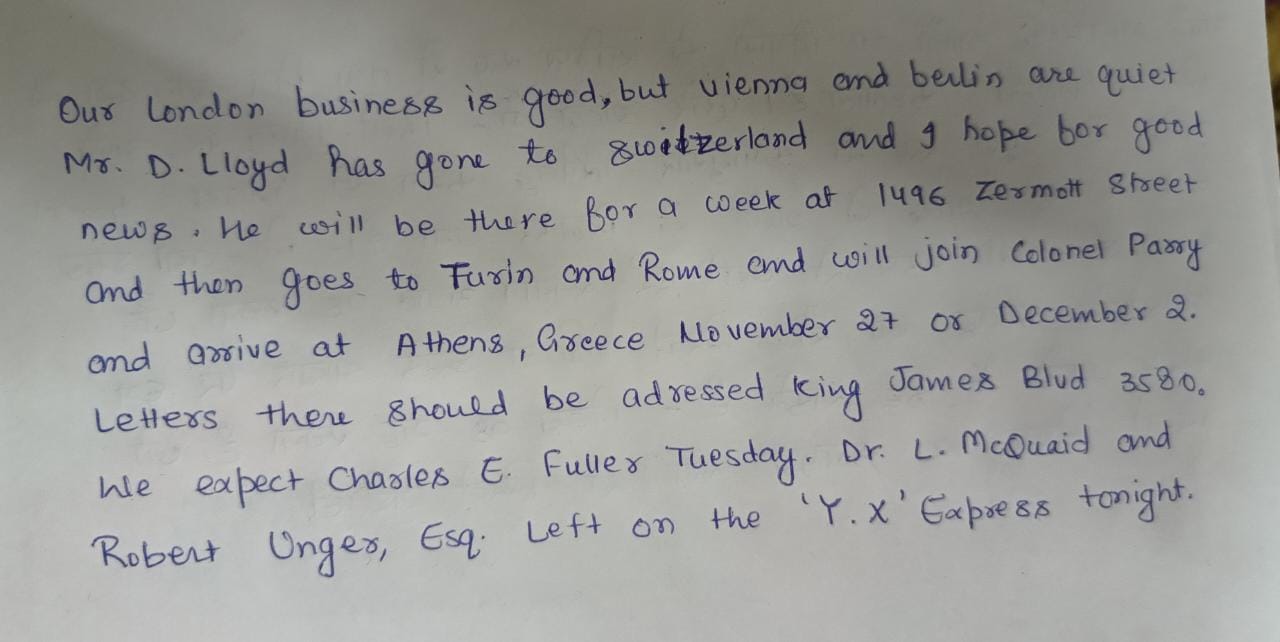 Our London business is good, but vienna and berlin are quiet
Mr. D. Lloyd has gone to switzerland and I hope for good
news. He will be there for a week at 1496 Zermott Street
and then goes to Turin and Rome and will join Colonel Parry
and arrive at Athens, Greece November 27 or December 2.
Letters there should be adressed King James Blvd 3580.
We expect Charles E. Fuller Tuesday. Dr. L. McQuaid and
Robert Unger, Esq. Left on the 'Y.X' Express tonight.